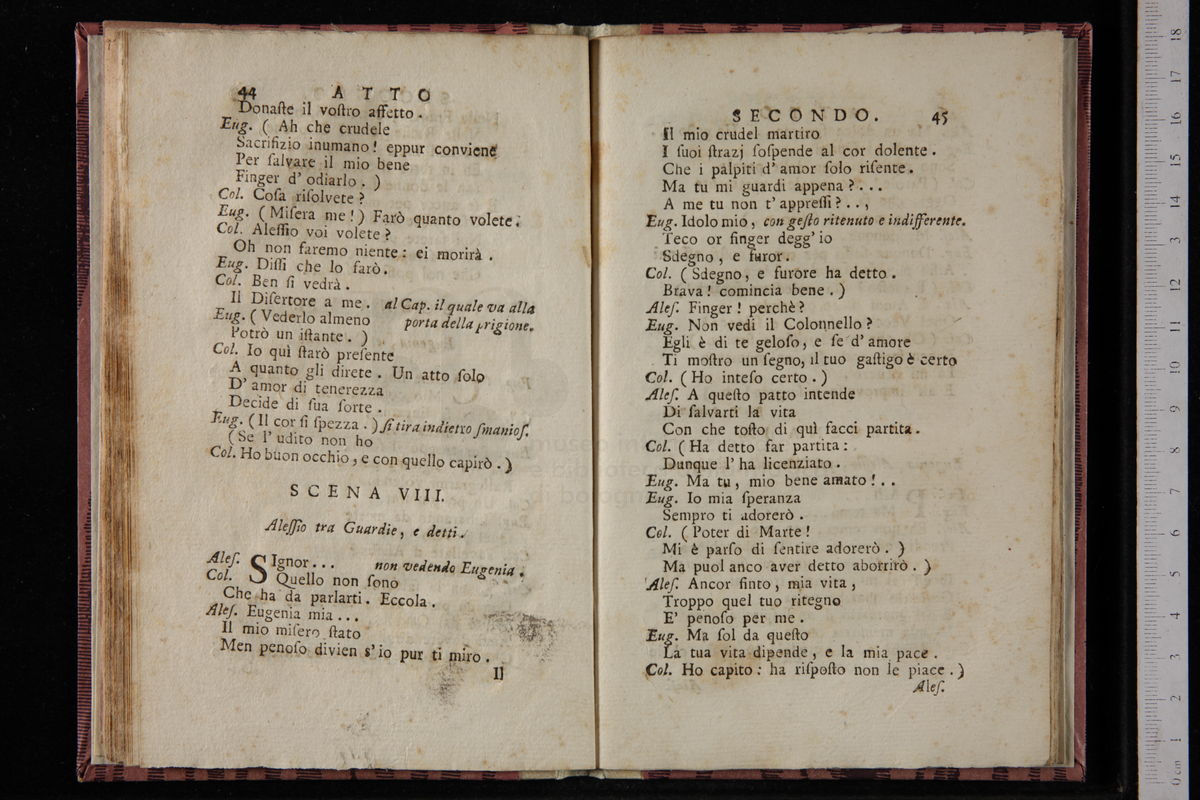 44 ATTO
Donaſte il voſtro affetto.
Eug. ( Ah che crudele
Sacrifizio inumano! eppur conviene
Per ſalvare il mio bene
Finger d' odiarlo. )
Col. Coſa riſolvete?
Eug. (Miſera me!) Farò quanto volete.
Col. Aleſſio voi volete?
Oh non faremo niente: ei morirà.
Eug. Diſſi che lo farò.
Col. Ben ſi vedrà.
Il Diſertore a me. al Cap. il quale va alla
Eug. ( Vederlo almeno porta della prigione.
Potrò un iſtante. )
Col. Io quì ſtarò preſente
A quanto gli direte. Un atto ſolo
D' amor di tenerezza
Decide di ſua ſorte.
Eug. (Il cor ſi ſpezza.) ſi tira indietro ſmanioſ.
(Se l' udito non ho
Col. Ho buon occhio, e con quello capirò.)
SCENA VIII.
Aleſſio tra Guardie, e detti.
Aleſ. SIgnor... non vedendo Eugenia.
Col. Quello non ſono
Che ha da parlarti. Eccola.
Aleſ. Eugenia mia...
Il mio miſero ſtato
Men penoſo divien s' io pur ti miro.
Il
SECONDO. 45
Il mio crudel martiro
I ſuoi ſtrazj ſoſpende al cor dolente.
Che i palpiti d' amor ſolo riſente.
Ma tu mi guardi appena?...
A me tu non t' appreſſi?..,
Eug. Idolo mio, con geſto ritenuto e indifferente.
Teco or finger degg' io
Sdegno, e furor.
Col. (Sdegno, e furore ha detto.
Brava! comincia bene.)
Aleſ. Finger! perchè?
Eug. Non vedi il Colonnello?
Egli è di te geloſo, e ſe d' amore
Ti moſtro un ſegno, il tuo gaſtigo è certo
Col. (Ho inteſo certo.)
Aleſ. A queſto patto intende
Di ſalvarti la vita
Con che toſto di quì facci partita.
Col. (Ha detto far partita:
Dunque l' ha licenziato.
Eug. Ma tu, mio bene amato!..
Eug. Io mia ſperanza
Sempro ti adorerò.
Col. (Poter di Marte!
Mi è parſo di ſentire adorerò. )
Ma puol anco aver detto aborrirò. )
Aleſ. Ancor finto, mia vita,
Troppo quel tuo ritegno
E' penoſo per me.
Eug. Ma ſol da queſto
La tua vita dipende, e la mia pace.
Col. Ho capito: ha riſpoſto non le piace.)
Aleſ.
0 cm 1 2 3 4 5 6 7 8 9 10 11 12 13 14 15 16 17 18